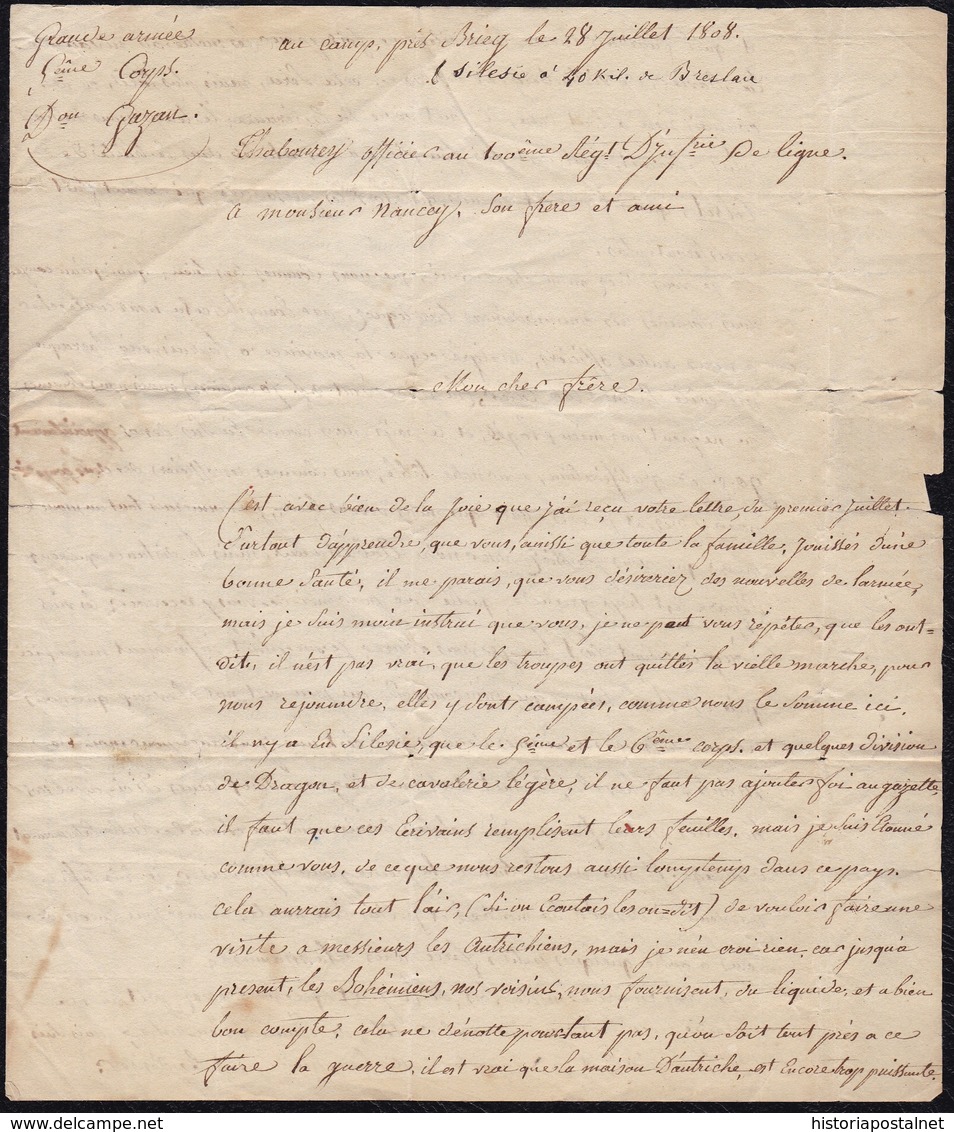 Grande armée
5ème Corps.
Don Gazan.
au camp, prés Brieg le 28 Juillet 1808.
( Silesie à 40 Kil. de Breslau
Thabourey officier au 100ème Régt D'Jnfrie De ligne.
A monsieur Nancey, Son frere et ami
Mon cher frère.
C'est avec bien de la Joie que j'ai reçu votre lettre, du premier juillet.
Surtout d'apprendre, que vous, ainssi que toute la famille, Jouissés d'une
bonne Santé, il me parais, que vous désireriez des nouvelles de l'armée,
mais je suis moin instrui que vous, je ne peut vous répéter, que les ont-
dits, il n'est pas vrai, que les troupes ont quittés la vielle marche, pour
nous rejoindre, elles y sont campées, comme nous le Somme ici,
il n'y a En Silesie, que le 5ème et le 6ème corps. et quelques division
de Dragon, et de cavalerie légère, il ne faut pas ajouter foi au gazette,
il faut que ces Ecrivains remplisent leurs feuilles, mais je suis Etonné
comme vous, de ce que nous restons aussi longtemp dans ce pays.
cela aurrais tout l'air, (Si on Ecoutais les on-dit) de vouloir faire une
visite a messieurs les Autrichiens, mais je n'en croi rien, car jusqu'a
present, les Bohémiens, nos voisins, nous fournisent, du liquide, et a bien
bon compte, cela ne dénotte pourtant pas, qu'on soit tout prés a ce
faire la guerre, il est vrai que la maison D'autriche, est Encore trop puissante.
historiapostalnet
historiapostalnet